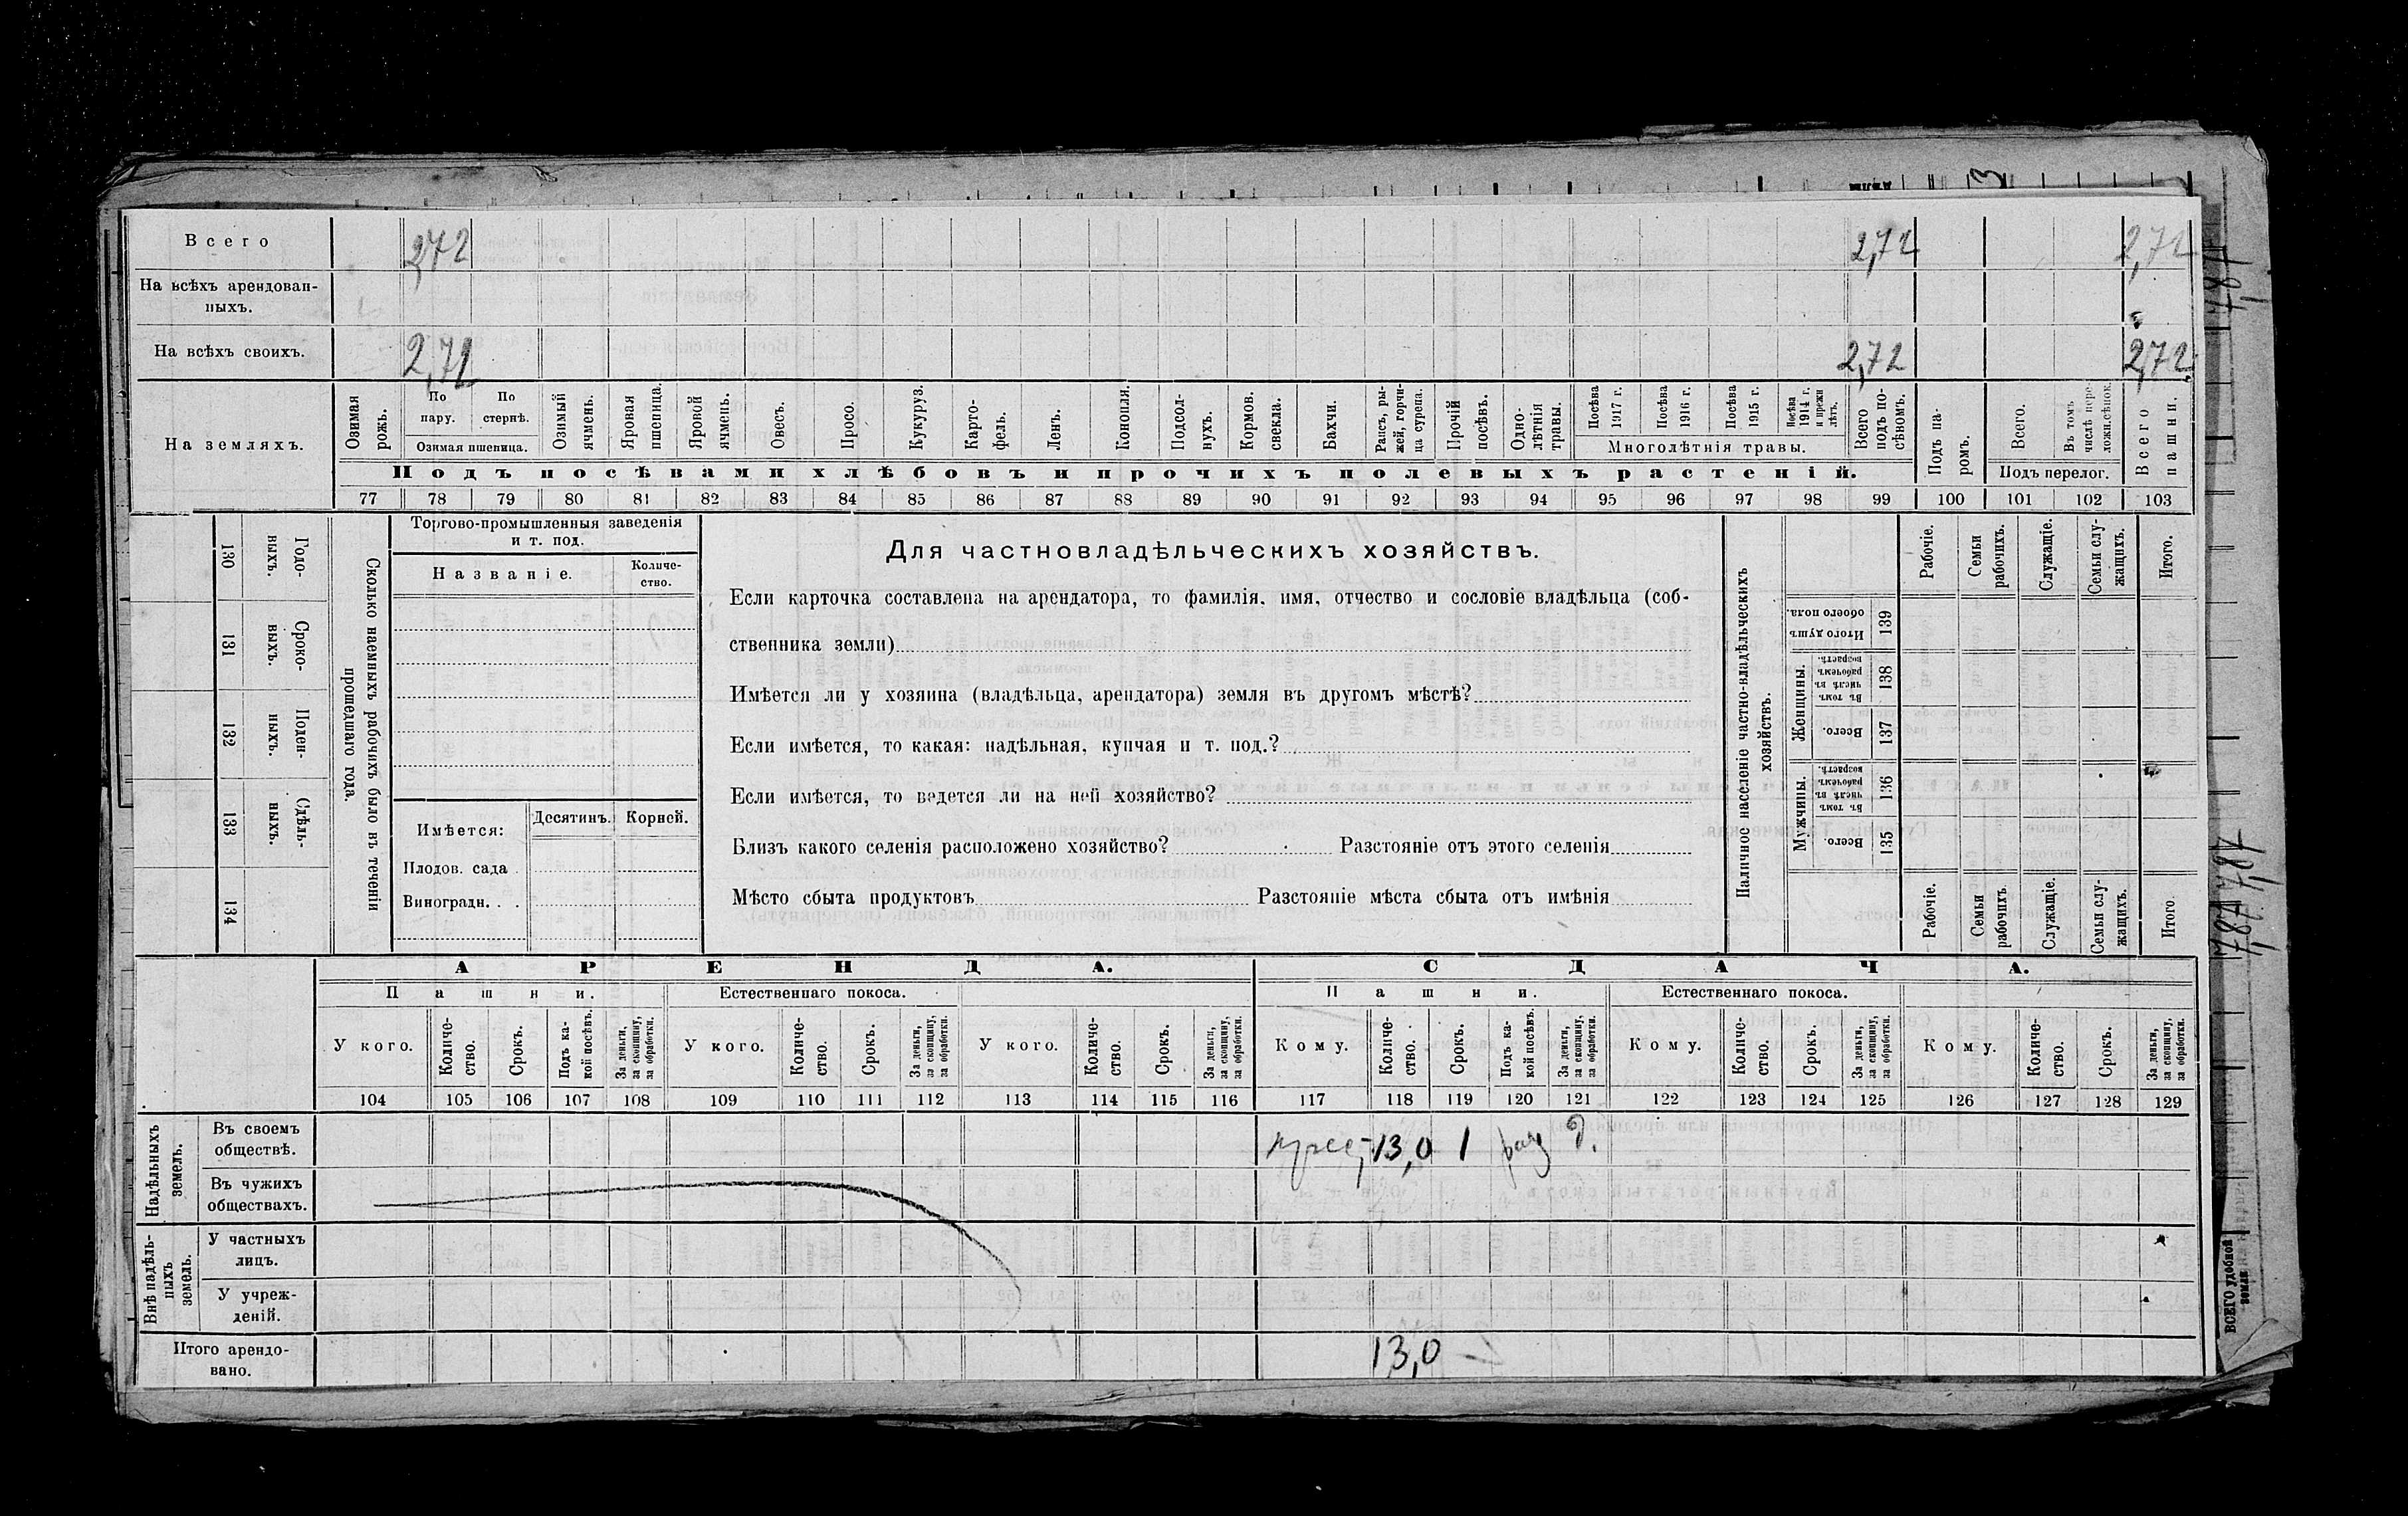 Всего 2,72 2,72 2,72
На всѣхъ арендован-
ныхъ.
На всѣхъ своихъ. 2,72 2,72 2,72
На земляхъ.
Озимая рожь.
По пару.
По стернѣ.
Озимая пшеница.
Озимый ячмень.
Яровая пшеница.
Яровой ячмень.
Овесъ.
Просо.
Кукуруз.
Карто-
фель.
Ленъ.
Конопля.
Подсол-
нухъ.
Кормов. свекла.
Бахчи.
Рапсъ, ры-
жей, горчи-
ца сурепа.
Прочій посѣвъ.
Одно-
лѣтнія травы.
Посѣва 1917 г.
Посѣва 1916 г.
Посѣва 1915 г.
Посѣва 1914 г. и прежн лѣтъ.
Многолѣтнія травы.
Всего подъ по-
сѣвомъ.
Подъ па-
ромъ.
Всего.
Въ томъ числѣ пере-
ложн.сѣнок.
Подъ перелог.
Всего пашни.
Подъ посѣвами хлѣбовъ и прочихъ полевыхъ растеній.
77 78 79 80 81 82 83 84 85 86 87 88 89 90 91 92 93 94 95 96 97 98 99 100 101 102 103
130 Годо-
выхъ.
131 Сроко-
выхъ.
132 Поден-
ныхъ.
133 Сдѣль-
ныхъ.
134
Сколько наемныхъ рабочихъ было въ теченіи
прошедшаго года.
Торгово-промышленныя заведенія
и т. под.
Названіе.
Количе-
ство.
Имѣется:
Десятинъ.
Корней.
Плодов. сада
Виноградн. . .
Для частновладѣльческихъ хозяйствъ.
Если карточка составлена на арендатора, то фамилія, имя, отчество и сословіе владѣльца (соб-
ственника земли)
Имѣется ли у хозяина (владѣльца, арендатора) земля въ другомъ мѣстѣ?
Если имѣется, то какая: надѣльная, купчая и т. под.?
Если имѣется, то ведется ли на ней хозяйство?
Близъ какого селенія расположено хозяйство? Разстояніе отъ этого селенія
Мѣсто сбыта продуктовъ Разстояніе мѣста сбыта отъ имѣнія
Наличное населеніе частно-владѣльческихъ
хозяйствъ.
Рабочіе.
Семьи рабочихъ.
Служащіе.
Семьи слу-
жащихъ.
Итого.
Итого душъ обоего пола. 139
Женщины.
Въ томъ числѣ въ рабочемъ возрастѣ. 138
Всего. 137
Мужчины.
Въ томъ числѣ въ рабочемъ возрастѣ. 136
Всего. 135
Рабочіе.
Семьи рабочихъ.
Служащіе.
Семьи слу-
жащихъ.
Итого.
АРЕНДА. СДАЧА.
Пашни. Естественнаго покоса. Пашни. Естественнаго покоса.
У кого.
Количе-
ство.
Срокъ.
Подъ ка-
кой посѣвъ.
За деньги, за скопщину, за обработки.
У кого.
Количе-
ство.
Срокъ.
За деньги, за скопщину, за обработки.
У кого.
Количе-
ство.
Срокъ.
За деньги, за скопщину, за обработки.
Кому.
Количе-
ство.
Срокъ.
Подъ ка-
кой посѣвъ.
За деньги, за скопщину, за обработки.
Кому.
Количе-
ство.
Срокъ.
За деньги, за скопщину, за обработки.
Кому.
Количе-
ство.
Срокъ.
За деньги, за скопщину, за обработки.
104 105 106 107 108 109 110 111 112 113 114 115 116 117 118 119 120 121 122 123 124 125 126 127 128 129
Надѣльныхъ
земель.
Въ своемъ
обществѣ.
13,0 1 д.
Въ чужихъ
обществахъ.
Внѣ надѣль-
ныхъ
земель.
У частныхъ
лицъ.
У учреж-
деній.
Итого арендо-
вано.
13,0
ВСЕГО удобной
земли